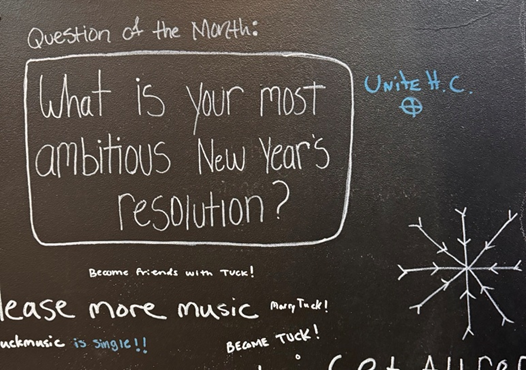 Question of the Month:
What is your most
ambitious New Year's
resolution?
UNiTE H.C.
Become friends with TUCK!
lease more music
Marry Tuck!
uckmusic is single!!
BECOME TUCK!
Get